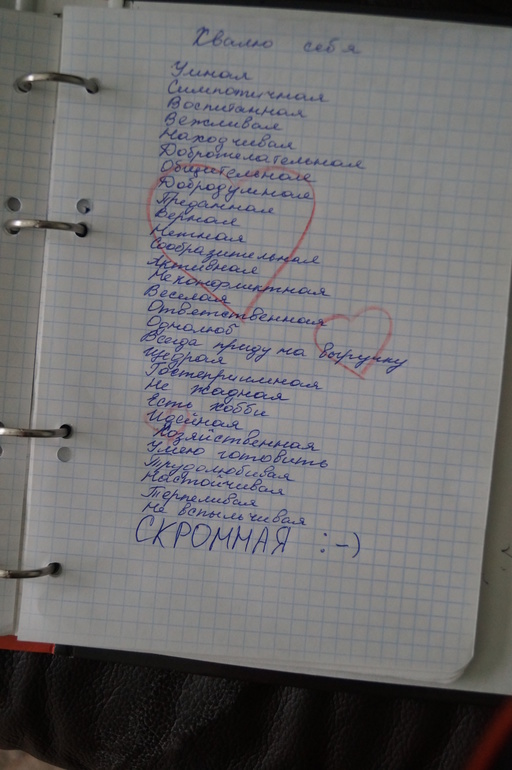 Хвалю себя
Умная
Симпотичная
Воспитанная
Вежливая
Находчивая
Доброжелательная
Общительная
Добродумная
Преданная
Верная
Нежная
Сообразительная
Активная
Неконфликтная
Веселая
Ответственная
Однолюб
Всегда приду на выручку
Щедрая
Гостеприимная
Не жадная
Есть хобби
Идейная
Хозяйственная
Умею готовить
Трудолюбивая
Настойчивая
Терпеливая
Не вспыльчивая
СКРОМНАЯ :-)